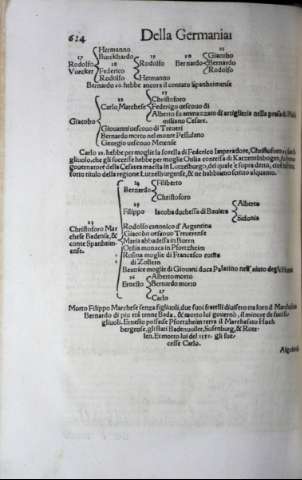 624 Della Germania:
Hermanno
17 Burckhardo 19 21 Giacobo
Rodolfo 18 Rodolfo Bernardo Bernardo
Vuecker Federico Rodolfo
Rodolfo Hermanno
Bernardo 20. hebbe ancora il contato Spanheimense
Christoforo
22
Carlo Marchese Federigo uescouo di
Alberto fu ammazzato da artiglierie nella presa di
Giacobo miliano Cesare.
Giouanni uescouo di Treueri
Bernardo morto nel monte Pessulano
Georgio uescouo Metense
Carlo 22. hebbe per moglie la sorella di Federico Imperadore, Christoforo suo fi
gliuolo, che gli successe hebbe per moglie Otilia contessa di Kaczenelnbogen, fu
gouernatore della Cesarea maestà in Lutzelburgo, del quale è sopra detto, cioè
sotto titolo della regione Lutzelburgense, & ne habbiamo scritto alquanto.
24 Filiberto
Bernardo
Christofo
29 Alberto
Filippo Iacoba duchessa di Bauiera
Sidonia
23 Rodolfo canonico d'Argentina
Christoforo Mar Giacobo uescouo Treuerense
chese Badense, & Maria abbadessa in Burrn
conte Spanhei- Otilia monaca in Pfortzheim
mense. Rosina moglie di Francesco conte
di Zollern
Beatrice moglie di Giouanni duca Palatino nell'
26 Alberto morto
Ernesto Bernardo morto
27
Carlo
Morto Filippo Marchese senza figliuoli, due suoi fratelli diuisero tra loro il Marchesato
Bernardo di piu età tenne Bada, & morto lui gouernò, il minore de suoi fi
gliuoli. Ernesto possede Pfortzheim terra il Marchesato Hoch
bergense, gli stati Badenuuiler, Susenburg, & Rote
len. Et morto lui del 1552. gli suc-
cesse Carlo.